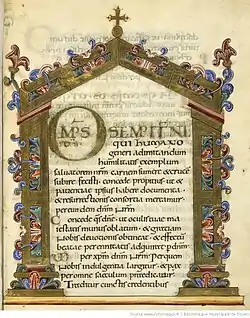 OMPS SEMPITERNE
DS QUI HUMANO
generi adimitandum
humilitatis exemplum
salvatorem nrm carnem sumere & cruce
subire fecisti concede propitius ut &
patientiae ipsius habere documenta
& resurrectionis consortia mereamur
per eundem dnm nrm
Concede qs dne ut oculis tuae ma
iestatis munus oblatum & gratiam
nobis devotionis obtineat & effectu
beatae perennitatis adquirat p dnm
per xpm dnm nrm per que
nobis indulgentia largitur & pax
per omne saeculum praedicatur
Traditur cunctis credentibus
Source gallica.bnf.fr / Bibliothèque municipale de Rouen